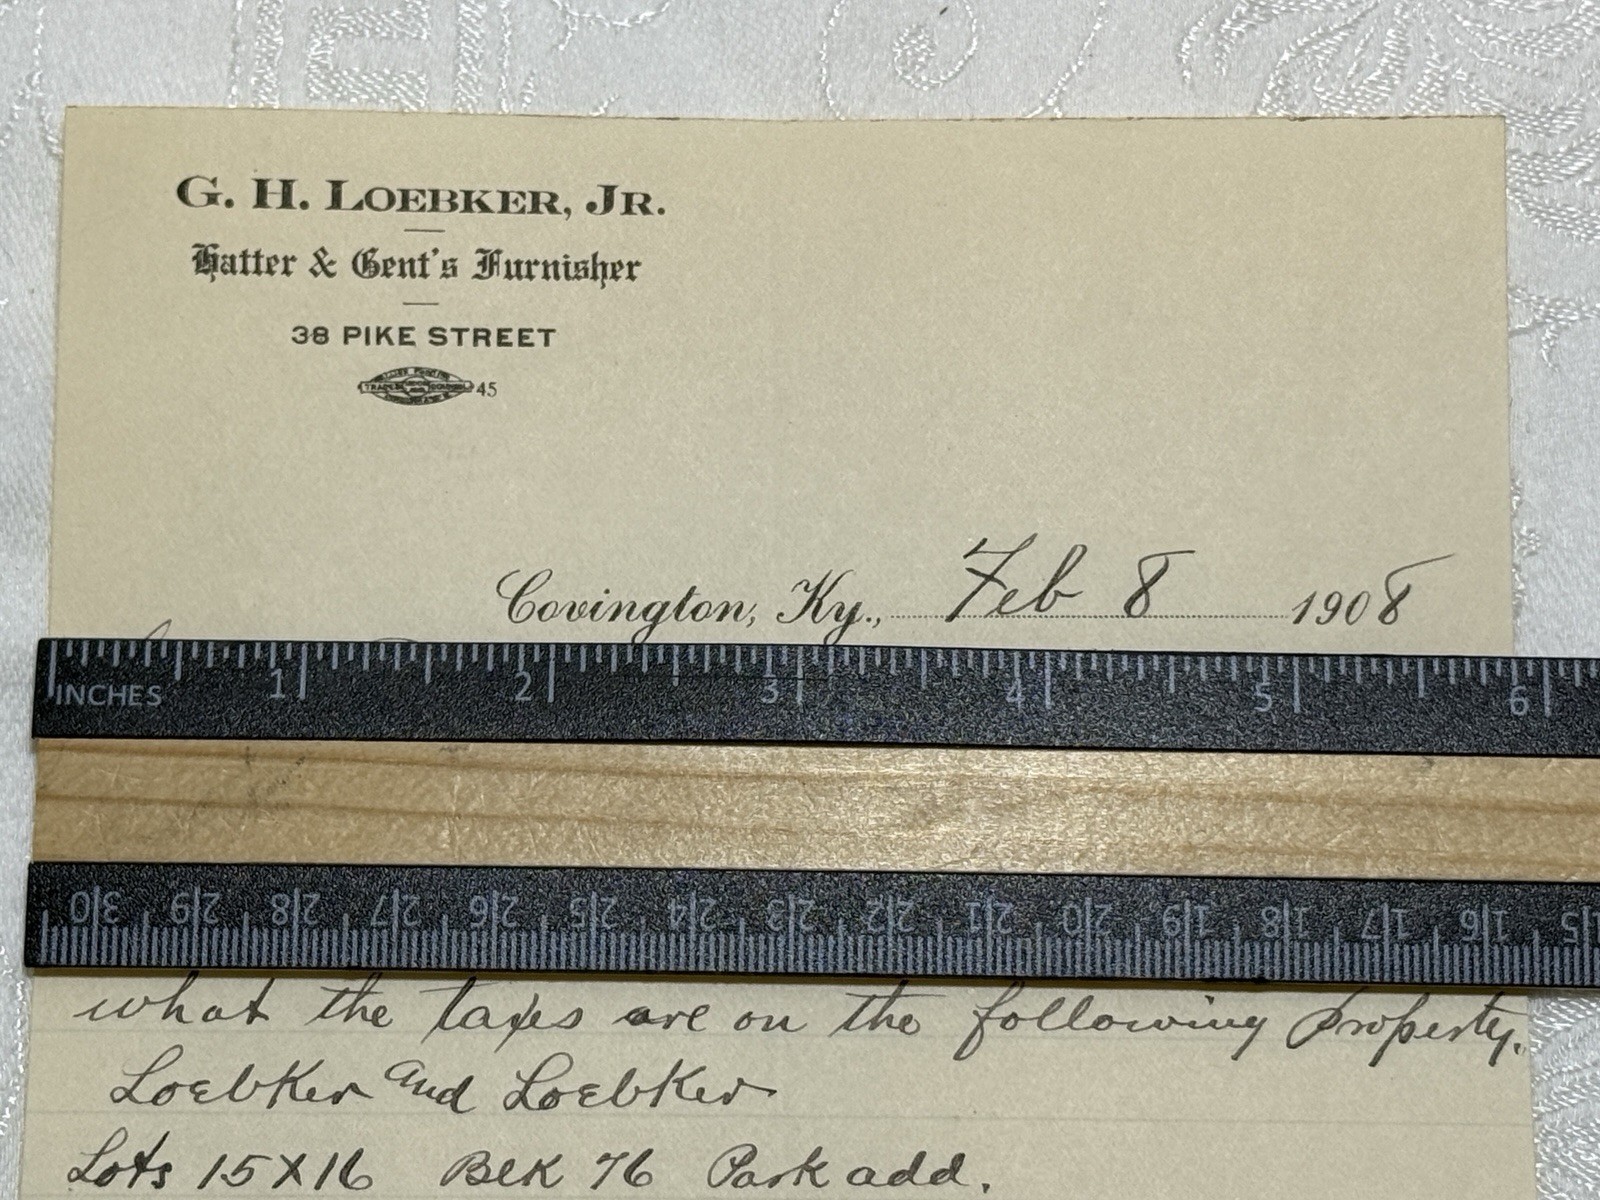 G. H. LOEBKER, JR.
Hatter & Gent's Furnisher
38 PIKE STREET
45
Covington, Ky., Feb 8 1908
INCHES 1 2 3 4 5 6
30 29 28 27 26 25 24 23 22 21 20 19 18 17 16 15
what the taxes are on the following property.
Loebker and Loebker
Lots 15 X 16 Blk 76 Park add.